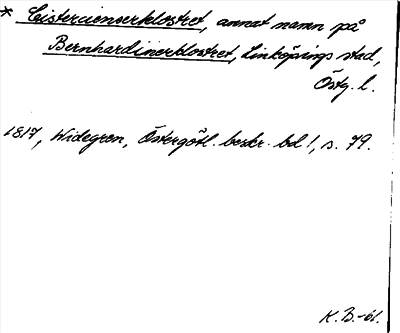 * Cistercienserklostret, annat namn på
Bernhardinerklostret, Linköpings stad,
Östg. l.
1817, Widegren, Östergötl. beskr. bd 1, s. 79.
K.B.-61.